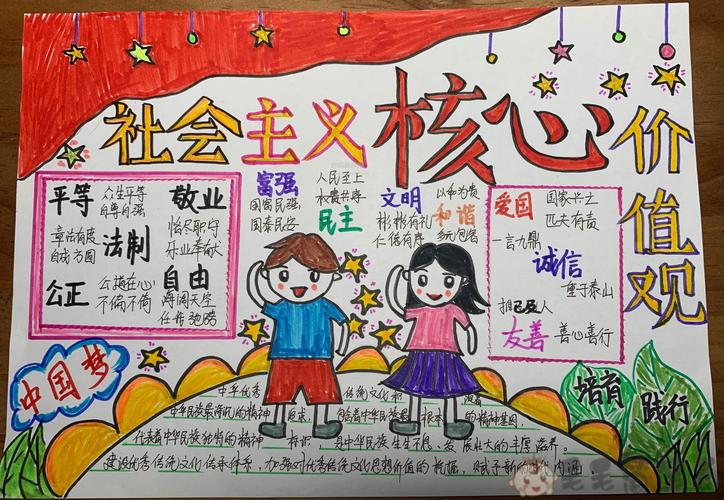 社会主义核心价值观
平等 众生平等
自尊自强
敬业 恪尽职守
乐业奉献
法制 章法有度
自成方圆
公正 公道在心
不偏不倚
自由 海阔天空
任你驰骋
富强
国富民强
国泰民安
人民至上
民主
文明
彬彬有礼
仁德有序
以和为贵
和谐
多元包容
爱国 国家兴亡
匹夫有责
一言九鼎
诚信
重于泰山
推己及人
友善 善心善行
中国梦
培育
践行
中华优秀传统文化
中华民族最深沉的精神追求
中华民族 根本的精神基因,
代表着中华民族独特的精神标识,是中华民族生生不息、发展壮大的丰厚滋养。
建设优秀传统文化传承体系,加强对优秀传统文化思想价值的挖掘,赋予新的时代内涵